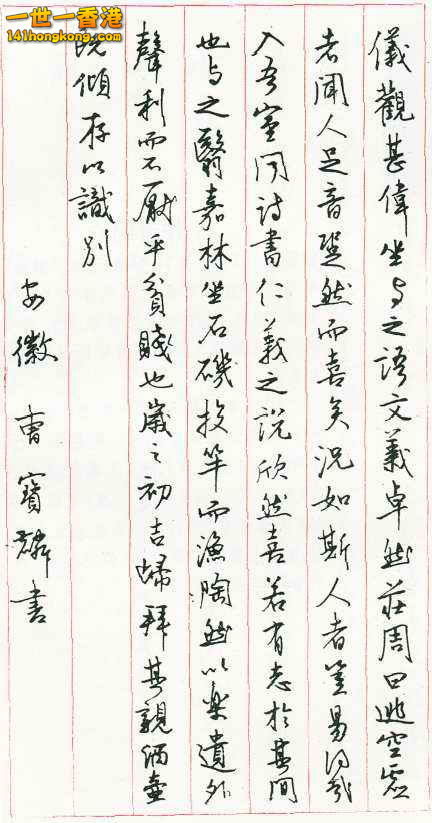 一世一香港
141hongkong.com
儀觀甚偉坐与之語文義卓然莊周曰逃空虛
者聞人足音跫然而喜矣況如斯人者豈易得哉
入吾室聞詩書仁義之說欣然喜若有志於其間
也与之翳嘉林坐石磯投竿而漁陶然以樂遺外
聲利而不厭乎貧賤也歲之初吉歸拜其親酒壺
既傾序以識別
安徽 曹寶麟書